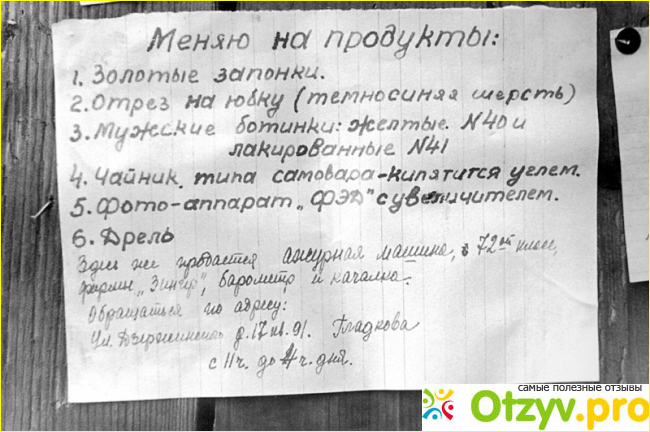 Меняю на продукты:
1. Золотые запонки.
2. Отрез на юбку (темносиняя шерсть)
3. Мужские ботинки: желтые N40 и
лакированные N41
4. Чайник типа самовара-кипятится углем.
5. Фото-аппарат „ФЭД" с увеличителем.
6. Дрель
Здесь же продается ажурная машина, 72ой класс,
фирмы „Зингер", барометр и качалка.
Обращаться по адресу:
Ул. Дзержинского д. 17 кв. 91. Гладкова
с 11 ч. до 4 ч. дня.
самые полезные отзывы
Otzyv.pro